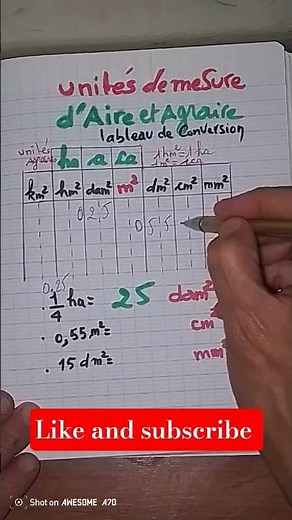 unités de mesure
d'Aire et Agraire
Tableau de Conversion
unités agraires ha a ca 1hm²=1ha
1m²=1ca
km² hm² dam² m² dm² cm² mm²
0 2 5
0 5 5
0,25
. 1/4 ha= 25 dam²
. 0,55m²= cm²
. 15dm²= mm²
Like and subscribe
Shot on AWESOME A70